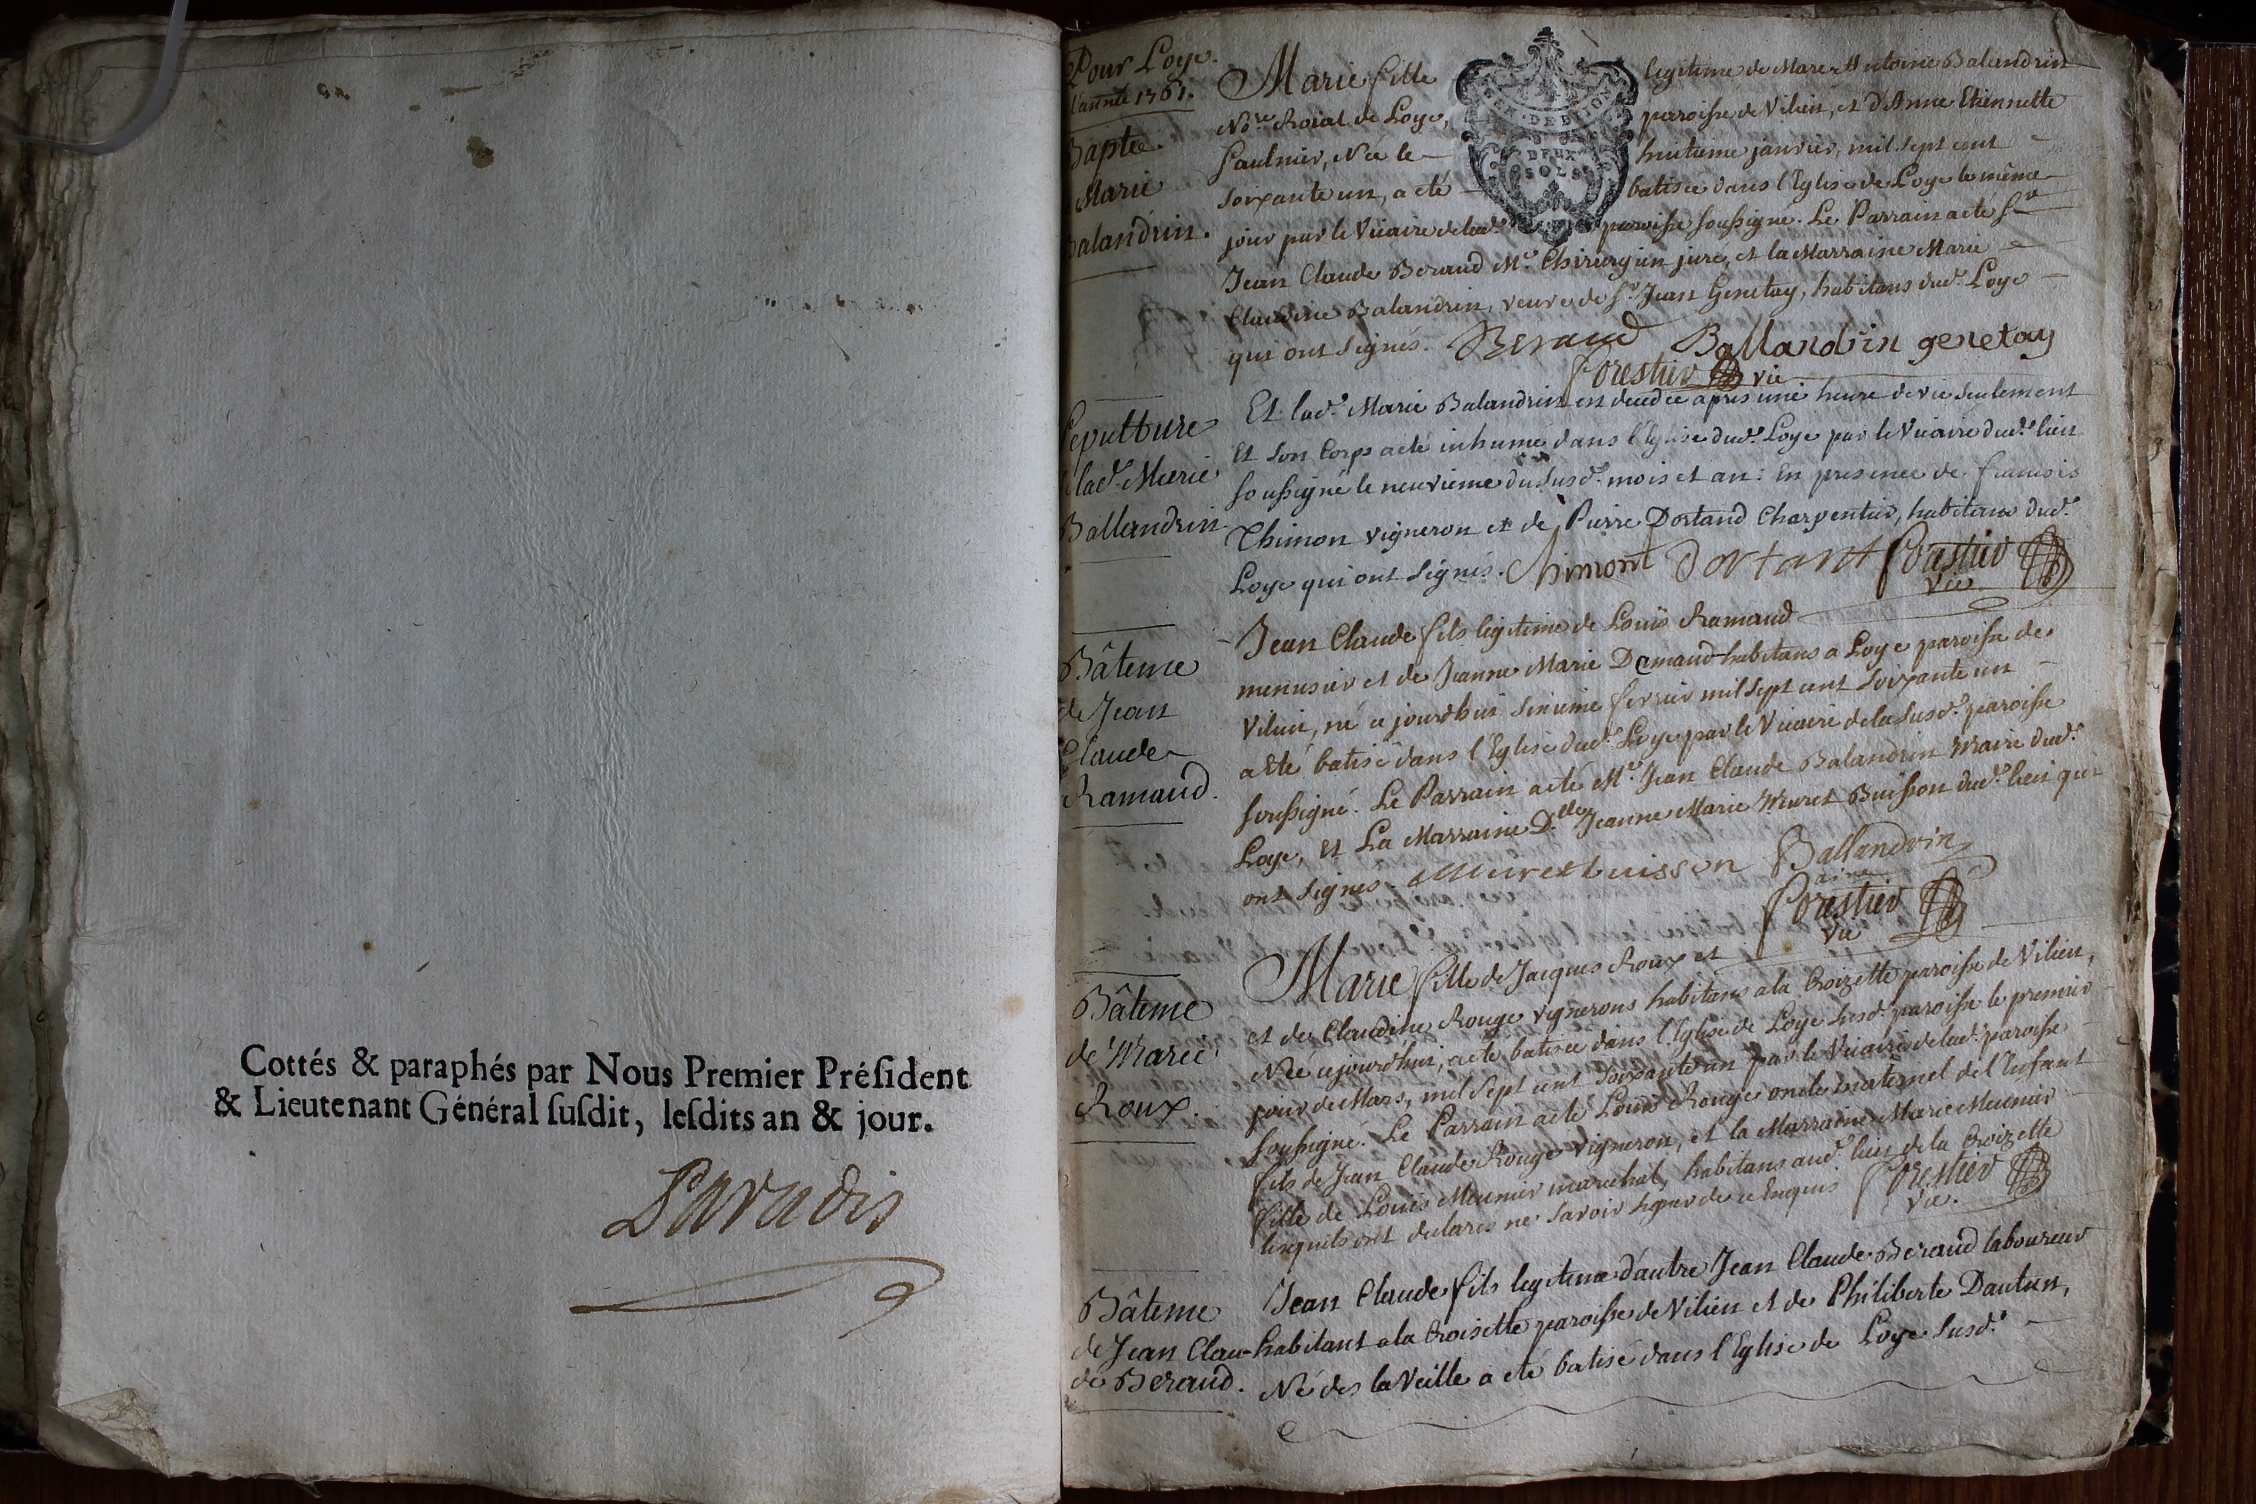 Cottés & paraphés par Nous Premier Préſident
& Lieutenant Général ſuſdit, leſdits an & jour.
Paradis
Pour Loye.
l'année 1761.
Bapte.
Marie
Balandrin.
Marie fille legitime de Marc Antoine Balandrin
No.re Roial de Loye, paroisse de Vilien, et d'Anne Etiennette
Saulnier, Née le huitieme janvier, mil sept cent
soixante un, a eté batisée dans l'Eglise de Loye le même
jour par le Vicaire de lad.e paroisse soussigné. Le Parrain a eté S.r
Jean Claude Beraud M.e Chirurgien juré, et la Marraine Marie
Claudine Balandrin, veuve de S.r Jean Genetay, habitans dud. Loye
qui ont signés. Beraud Ballandrin genetay
Forestier vic
GEN. DE DIJON
DEUX
SOLS
Sepulture
lad.e Marie
Ballandrin
Et lad.e Marie Balandrin est decedée apres une heure de vie seulement
Et son Corps a eté inhumé dans l'Eglise dud. Loye par le Vicaire dud. lieu
soussigné le neuvieme du susd. mois et an: En presence de francois
Thimon vigneron et de Pierre Dortand Charpentier, habitans dud.
Loye qui ont signés. Thimont Dortant Forestier
vic
Bâteme
de Jean
Claude
Ramaud.
Jean Claude fils legitime de Louis Ramaud
menusier et de Jeanne Marie Damaud habitans a Loye paroisse de
Vilien, né cejourdhui sixieme fevrier mil sept cent soixante un
a Eté batisé dans l'Eglise dud. Loye par le Vicaire de la susd. paroisse
soussigné. Le Parrain a eté M.e Jean Claude Balandrin Maire dud.
Loye, et La Marraine D.lle Jeanne Marie Muret Buisson dud. lieu qui
ont signés. Muret buisson Ballandrin
ainé.
Forestier
vic
Bâteme
de Marie
Roux.
Marie fille de Jacques Roux et
et de Claudine Rouge vignerons habitans a la Croizette paroisse de Vilien,
Née cejourd'hui, a eté batisée dans l'Eglise de Loye susd. paroisse le premier
jour de Mars, mil sept cent soixante un par le Vicaire de lad. paroisse
soussigné. Le Parrain a eté Louis Rouge oncle maternel de l'Enfant
fils de Jean Claude Rouge vigneron, et la Marraine Marie Meunier
fille de Louis Meunier marechal, habitans aud. lieu de la Croizette
lesquels ont declarés ne savoir signer de ce Enquis Forestier
vic.
Bâteme
de Jean Clau-
de Beraud.
Jean Claude fils legitime d'autre Jean Claude Beraud laboureur
habitant a la Croisette paroisse de Vilien et de Philiberte Dautun,
Né des la Veille a eté batisé dans l'Eglise de Loye susd.